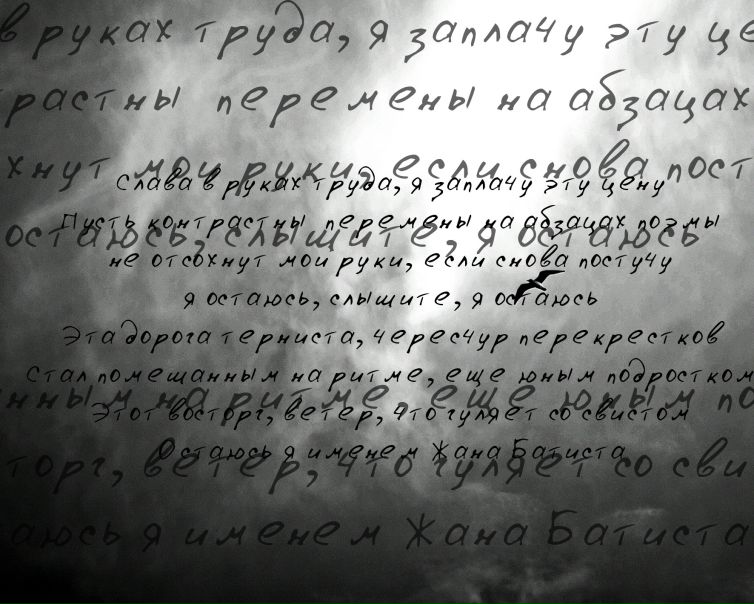 в руках труда, я заплачу эту це
растны перемены на абзацах
хнут мои руки, если снова пост
остаюсь, слышите, я остаюсь
Слава в руках труда, я заплачу эту цену
Пусть контрастны перемены на абзацах поэмы
не отсохнут мои руки, если снова постучу
я остаюсь, слышите, я остаюсь
Эта дорога терниста, чересчур перекрестков
Стал помешанным на ритме, еще юным подростком
Этот восторг, ветер, что гуляет со свистом
Остаюсь я именем Жана Батиста
нным на ритме, еще юным по
торг, ветер, что гуляет со сви
аюсь я именем Жана Батиста